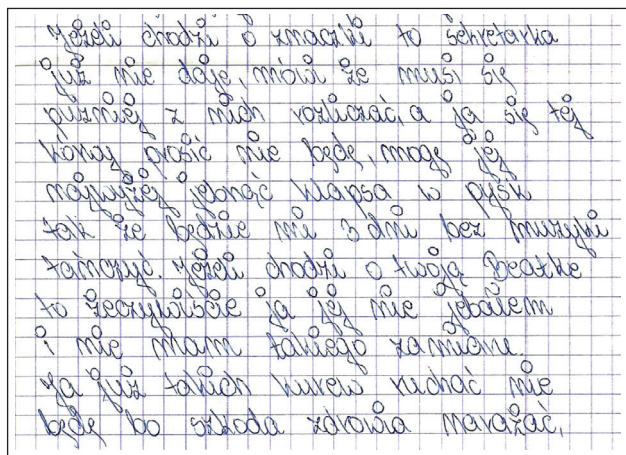 Jeżeli chodzi o znaczki to sekretarka
już nie daje, mówi że musi się
puzniej z nich rozliczać, a ja się tej
kurwy prosić nie będe, moge jej
najwyżej jebnąć klapsa w pysk
tak że będzie mi 3 dni bez muzyki
tańczyć. Jeżeli chodzi o twoją Beatke
to żeczywiście ja jej nie jebałem
i nie mam takiego zamiaru.
Ja już takich kurew ruchać nie
będę bo szkoda zdrowia narażać,